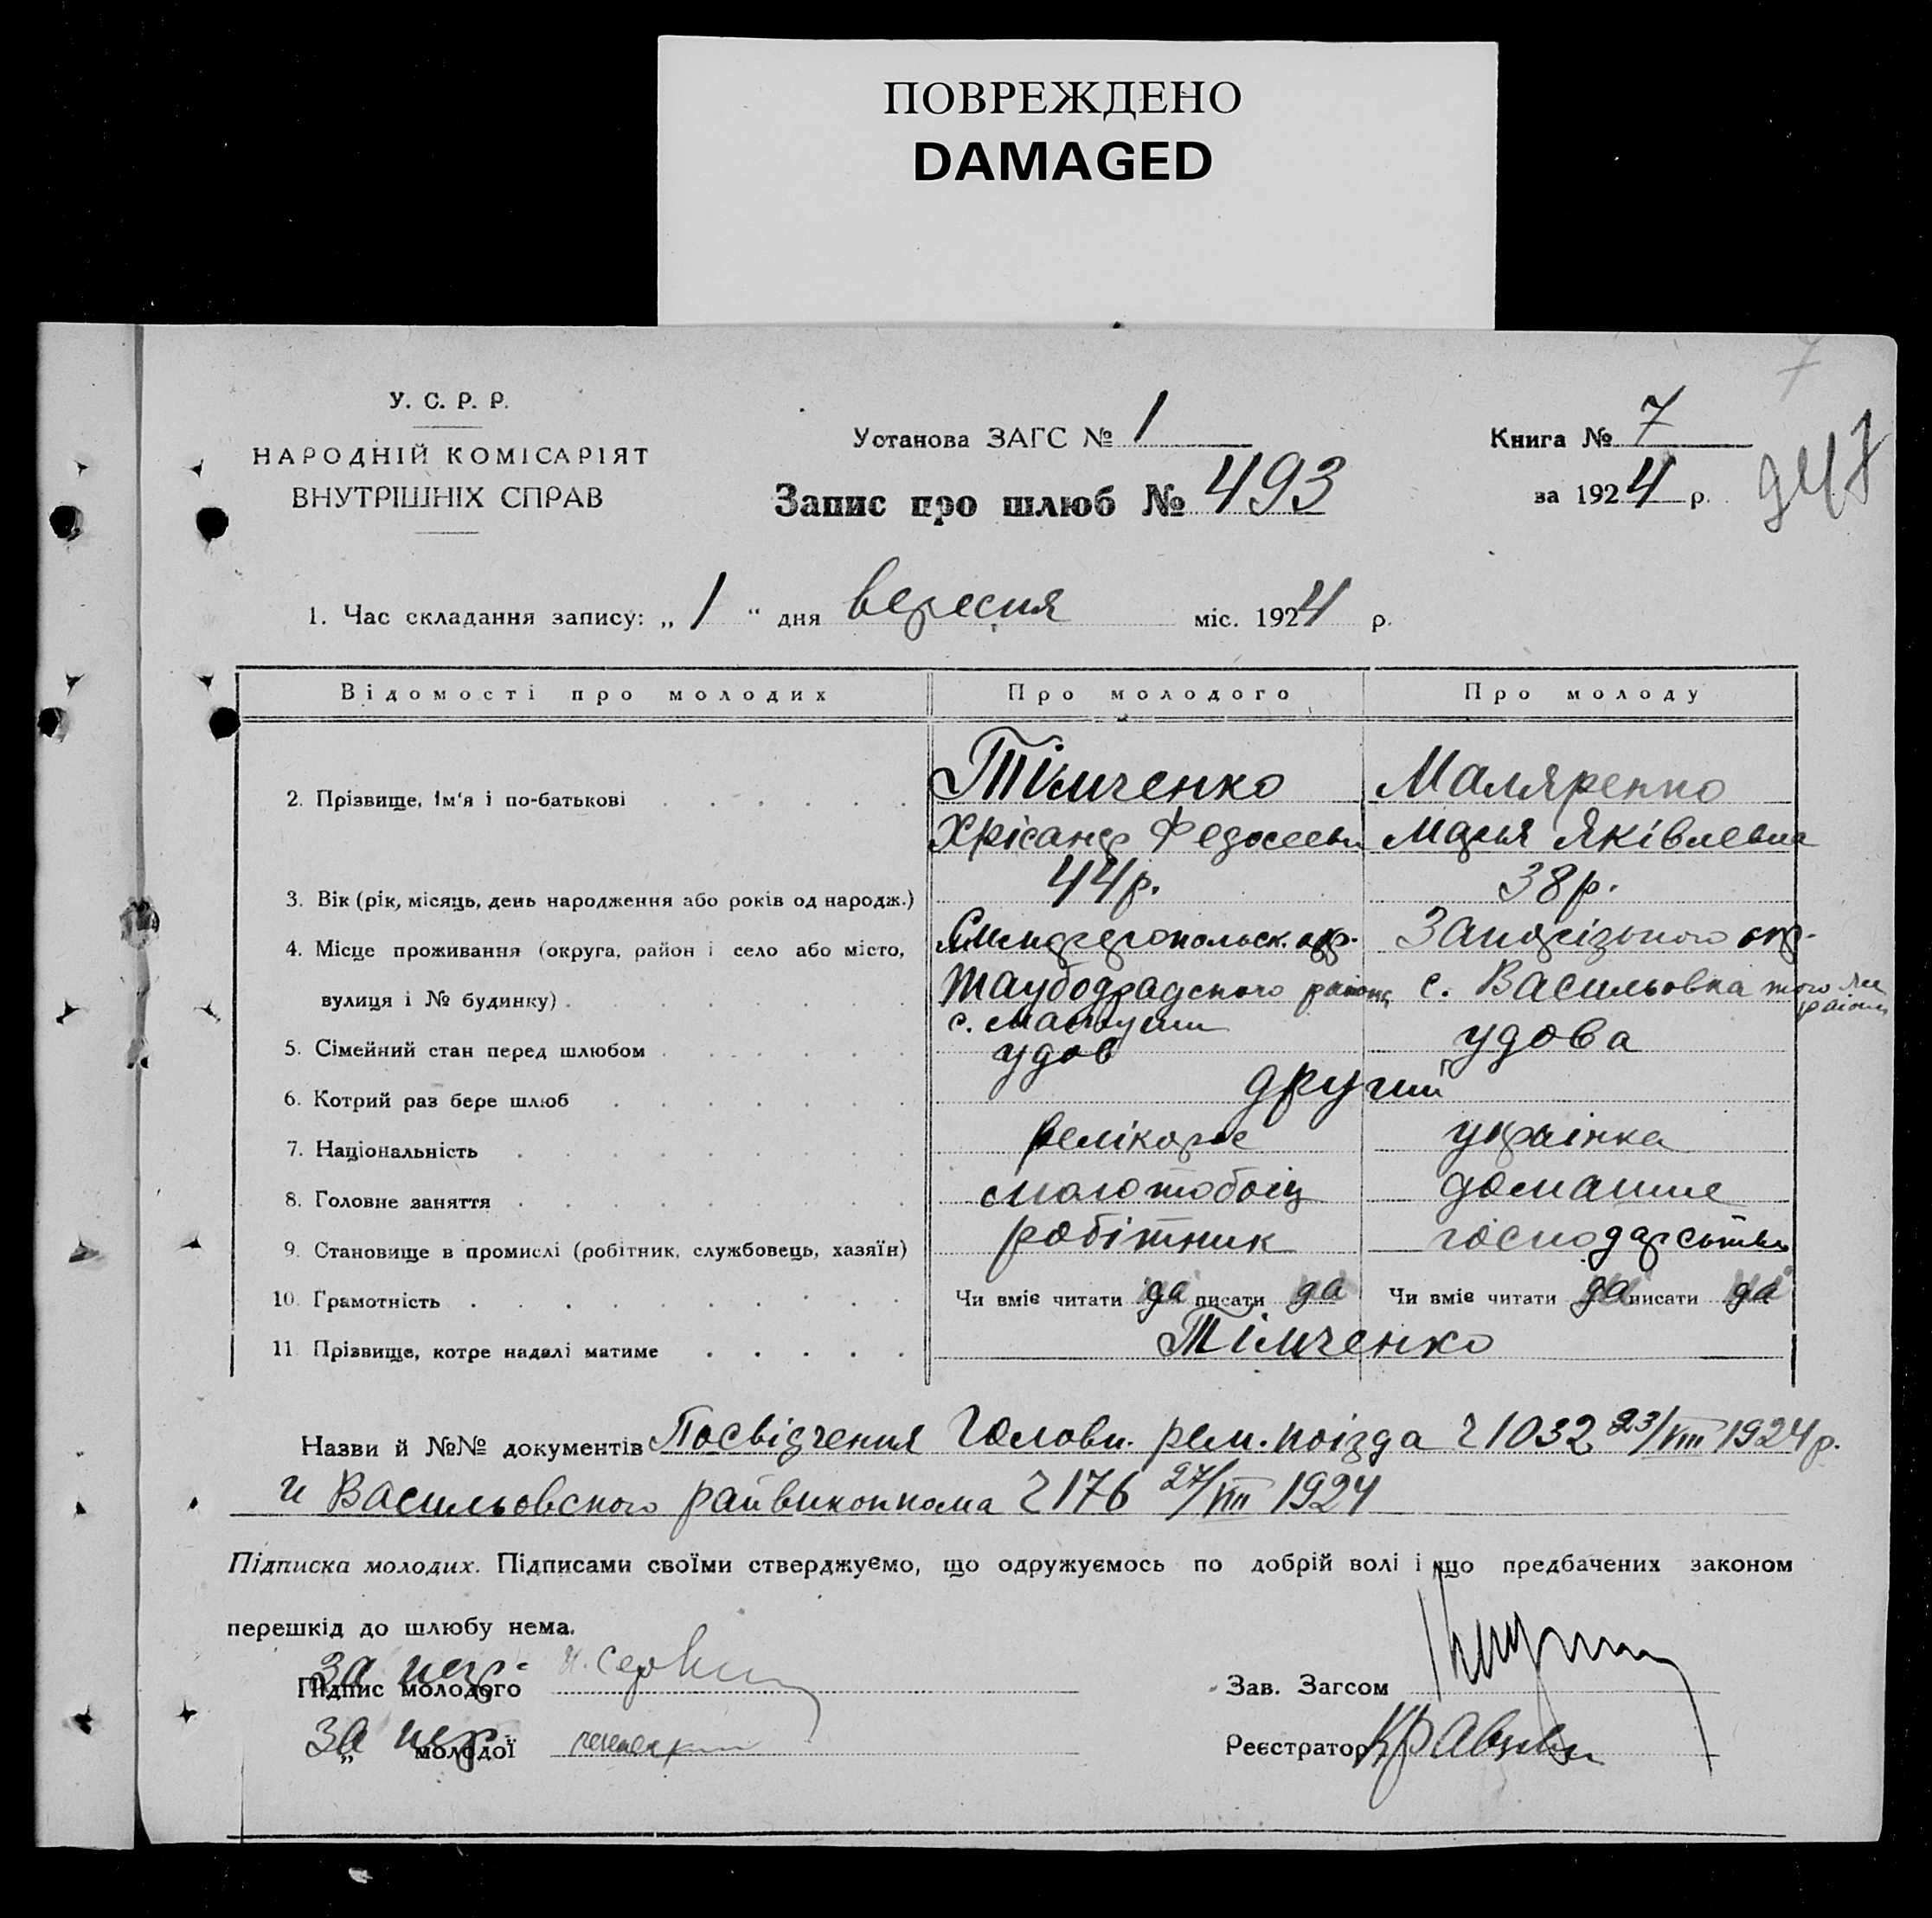 ПОВРЕЖДЕНО
DAMAGED
7
У. С. Р. Р.
НАРОДНІЙ КОМІСАРІЯТ
ВНУТРІШНІХ СПРАВ
Установа ЗАГС № 1
Запис про шлюб № 493
Книга № 7
за 1924 р.
1. Час складання запису: „ 1 “ дня вересня міс. 1924 р.
Відомості про молодих Про молодого Про молоду
2. Прізвище, Ім'я і по-батькові Тімченко Маляренко
Хрісанф Федосееви Марья Яківлевна
3. Вік (рік, місяць, день народження або років од народж.) 44 р. 38 р.
4. Місце проживання (округа, район і село або місто, окр. Запорізького окр.
вулиця і № будинку) района с. Васильовка того же района
с.
5. Сімейний стан перед шлюбом удов удова
6. Котрий раз бере шлюб другий
7. Національність велікорос українка
8. Головне заняття молотобоіц домашне
9. Становище в промислі (робітник, службовець, хазяїн) робітник господарство
10. Грамотність Чи вміє читати да писати да Чи вміє читати да писати да
11. Прізвище, котре надалі матиме Тімченко
Назви й №№ документів Посвідчення Головн. рем. поізда ч 1032 23/VIII 1924 р.
и Васильовского райвиконкома ч 176 27/VIII 1924
Підписка молодих. Підписами своїми стверджуємо, що одружуємось по добрій волі і що предбачених законом
перешкід до шлюбу нема.
За
Підпис молодого
Зав. Загсом
За
„ молодої
Реєстратор